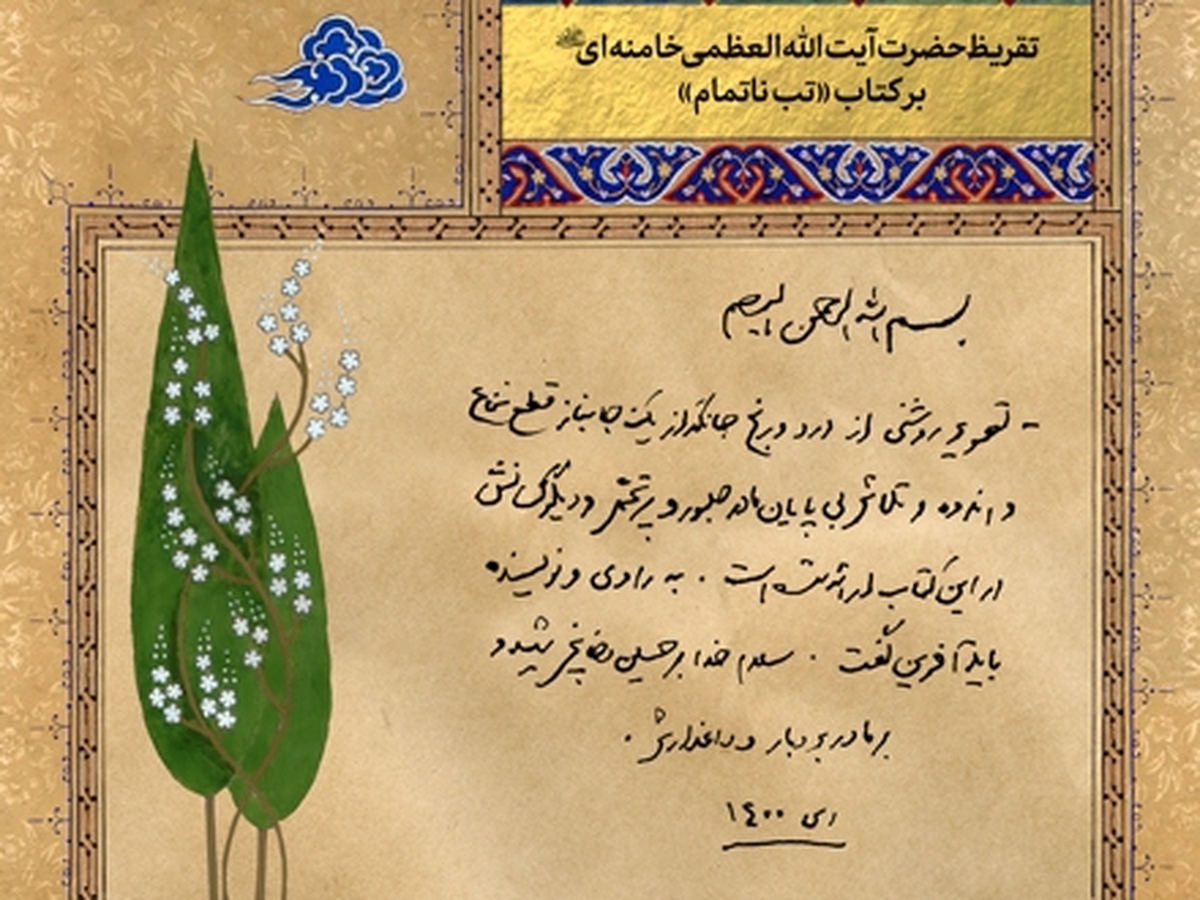 تقریظ حضرت آیت الله العظمی خامنه‌ای
بر کتاب «تب ناتمام»
بسم الله الرحمن الرحیم
- تصویر روشنی از درد و رنج جانگداز یک جانباز قطع نخاع
و اندوه و تلاش بی پایان مادر صبور و پرتحمّل و دیگر کسانش
در این کتاب ارائه شده است . به راوی و نویسنده
باید آفرین گفت . سلام خدا بر حسین شهید و
بر مادر بردبار و داغدارش .
دی ۱۴۰۰